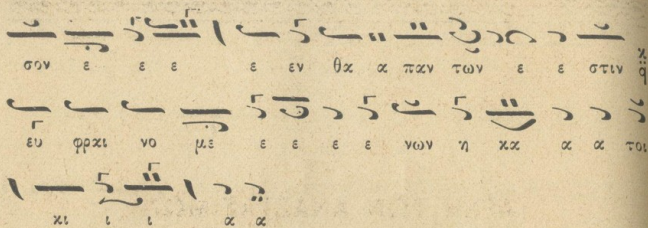 σον ε ε ε ε εν θα α παν των ε ε στιν
ευ φραι νο με ε ε ε ε νων η κα α α τοι
κι ι ι α α